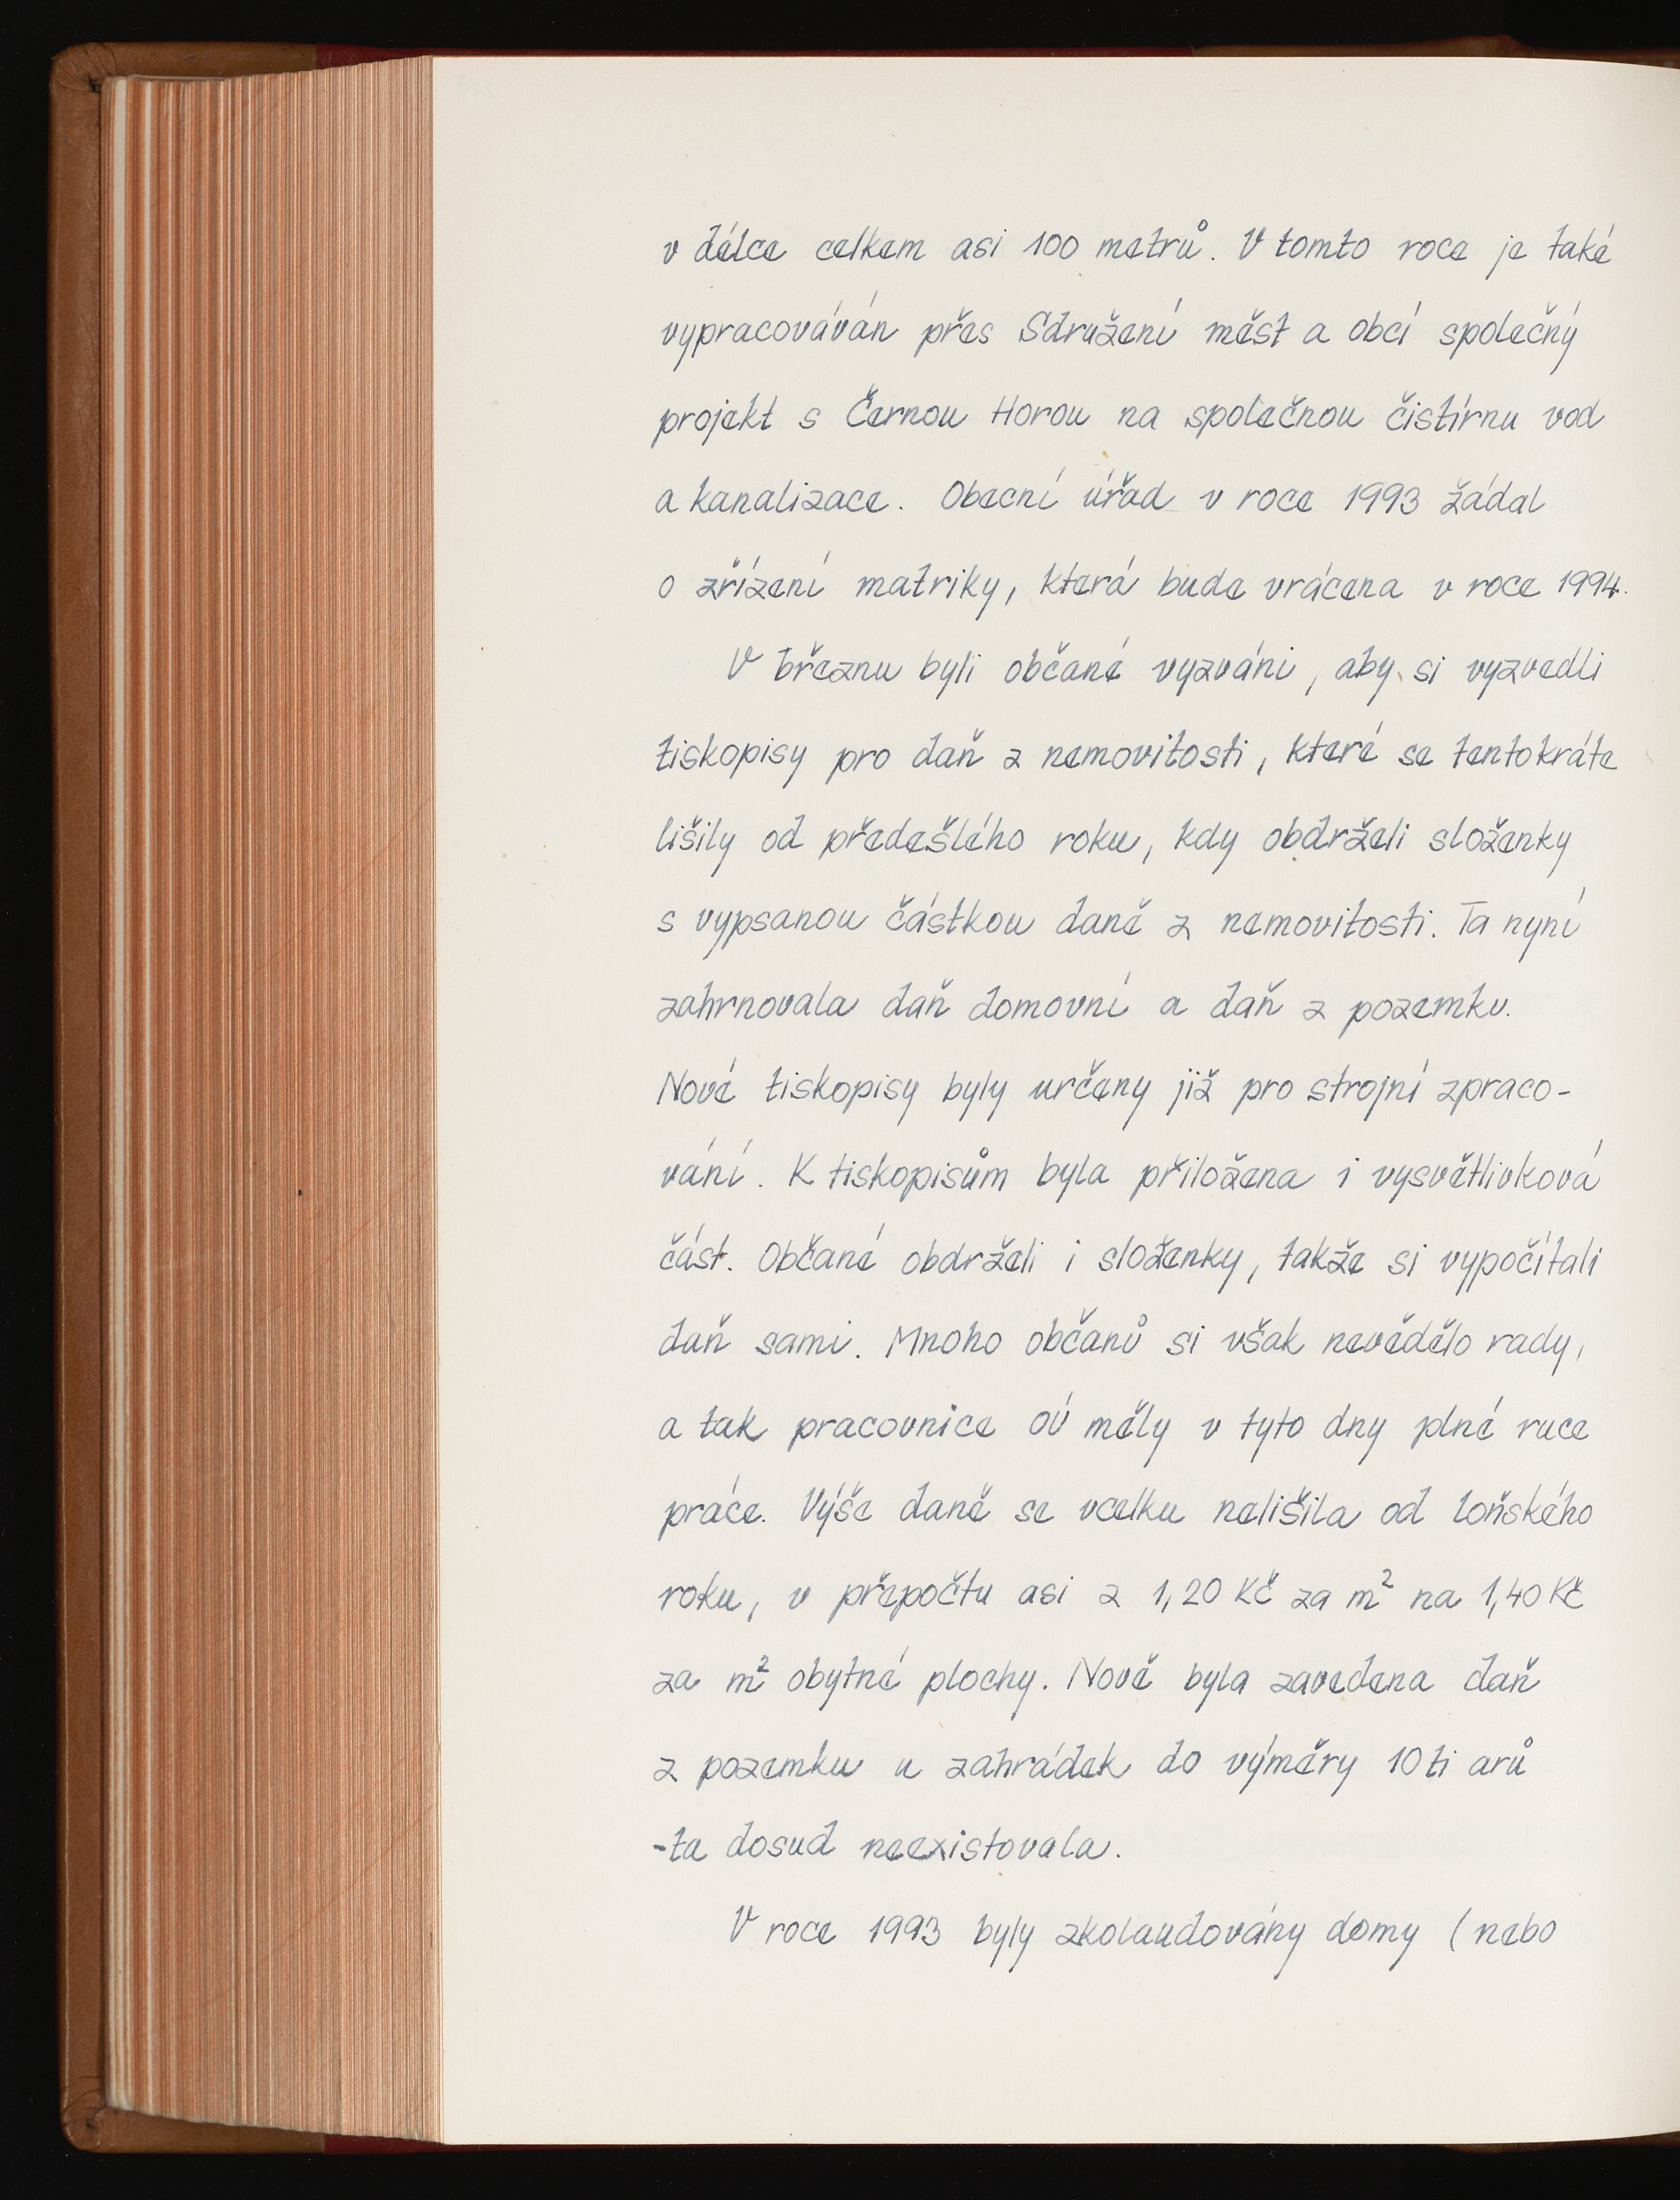 v délce celkem asi 100 metrů. V tomto roce je také
vypracováván přes Sdružení měst a obcí společný
projekt s Černou Horou na společnou čistírnu vod
a kanalizace. Obecní úřad v roce 1993 žádal
o zřízení matriky, která bude vrácena v roce 1994.
V březnu byli občané vyzváni, aby si vyzvedli
tiskopisy pro daň z nemovitosti, které se tentokráte
lišily od předešlého roku, kdy obdrželi složenky
s vypsanou částkou daně z nemovitosti. Ta nyní
zahrnovala daň domovní a daň z pozemku.
Nové tiskopisy byly určeny již pro strojní zpraco-
vání. K tiskopisům byla přiložena i vysvětlivková
část. Občané obdrželi i složenky, takže si vypočítali
daň sami. Mnoho občanů si však nevědělo rady,
a tak pracovnice OÚ měly v tyto dny plné ruce
práce. Výše daně se vcelku nelišila od loňského
roku, v přepočtu asi z 1,20 Kč za m² na 1,40 Kč
za m² obytné plochy. Nově byla zavedena daň
z pozemku u zahrádek do výměry 10ti arů
-ta dosud neexistovala.
V roce 1993 byly zkolaudovány domy (nebo